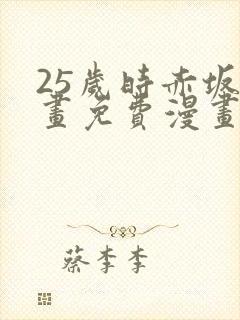 25歲時赤坂
畫免費漫畫
蔡李李